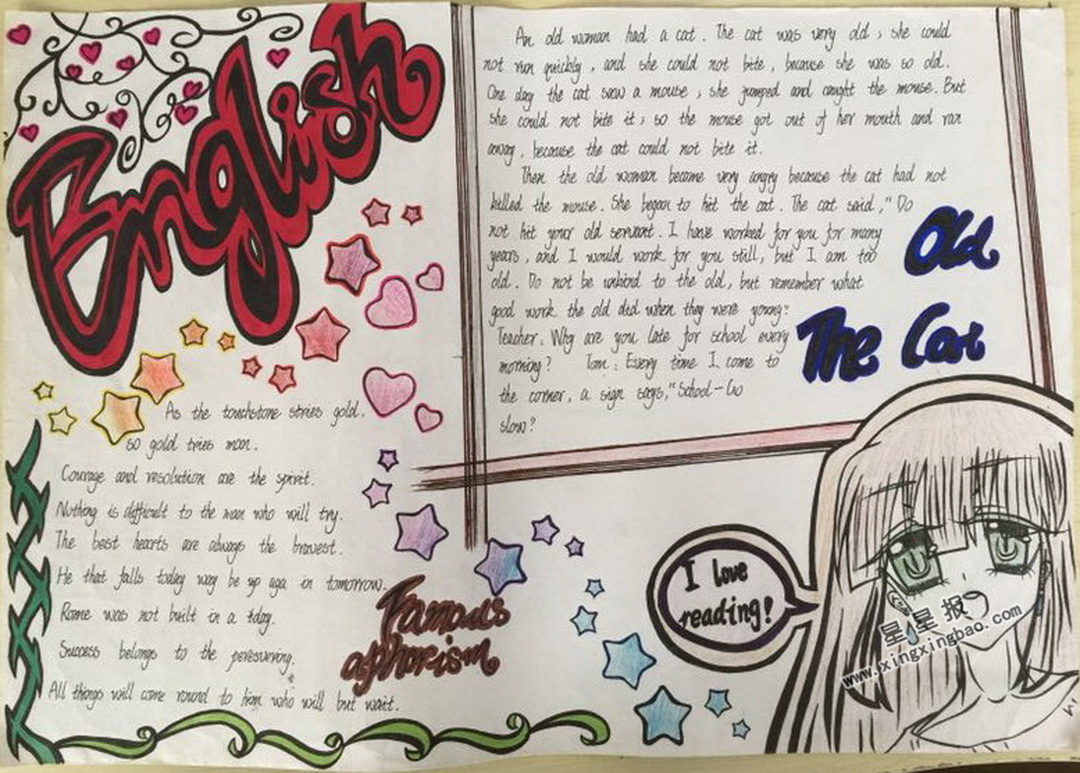 English
An old woman had a cat. The cat was very old, she could
not run quickly, and she could not bite, because she was so old.
One day the cat saw a mouse, she jumped and caught the mouse. But
she could not bite it, so the mouse got out of her mouth and ran
away, because the cat could not bite it.
Then the old woman became very angry because the cat had not
killed the mouse. She began to hit the cat. The cat said, "Do
not hit your old servant. I have worked for you for many
years, and I would work for you still, but I am too
old. Do not be unkind to the old, but remember what
good work the old did when they were young."
Teacher: Why are you late for school every
morning? Tom: Every time I come to
the corner, a sign says, "School-Go
slow?
Old
The Cat
As the touchstone stries gold.
so gold tries man.
Courage and resolution are the spirit.
Nothing is difficult to the man who will try.
The best hearts are always the bravest.
He that falls today way be up aga in tomorrow.
Rome was not built in a tday.
Success belongs to the peresurving.
All things will come round to him who will but wait.
Famous
aphorism
I love
reading!
星星报
www.xingxingbao.com